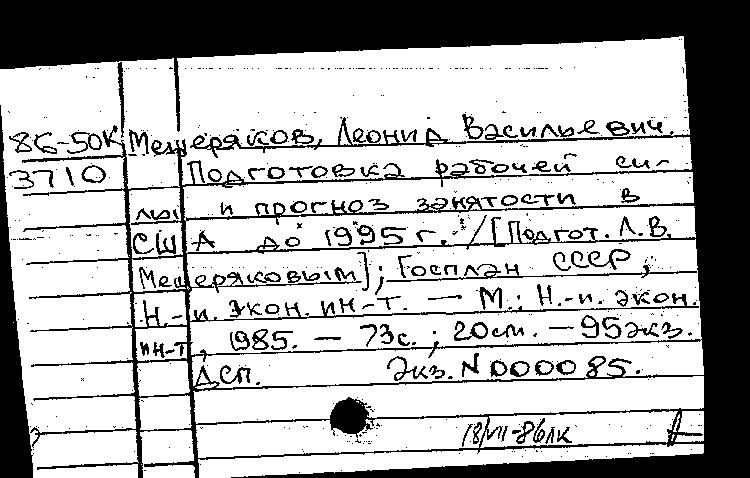 86-50К Мещеряков, Леонид Васильевич.
3710 Подготовка рабочей си-
лы и прогноз занятости в
США до 1995 г. /[Подгот. Л.В.
Мещеряковым]; Госплан СССР,
Н.-и. экон. ин-т. — М.: Н.-и. экон.
ин-т, 1985. — 73с.; 20см. — 95экз.
ДСП. Экз. N 0000 85.
18/VII-86